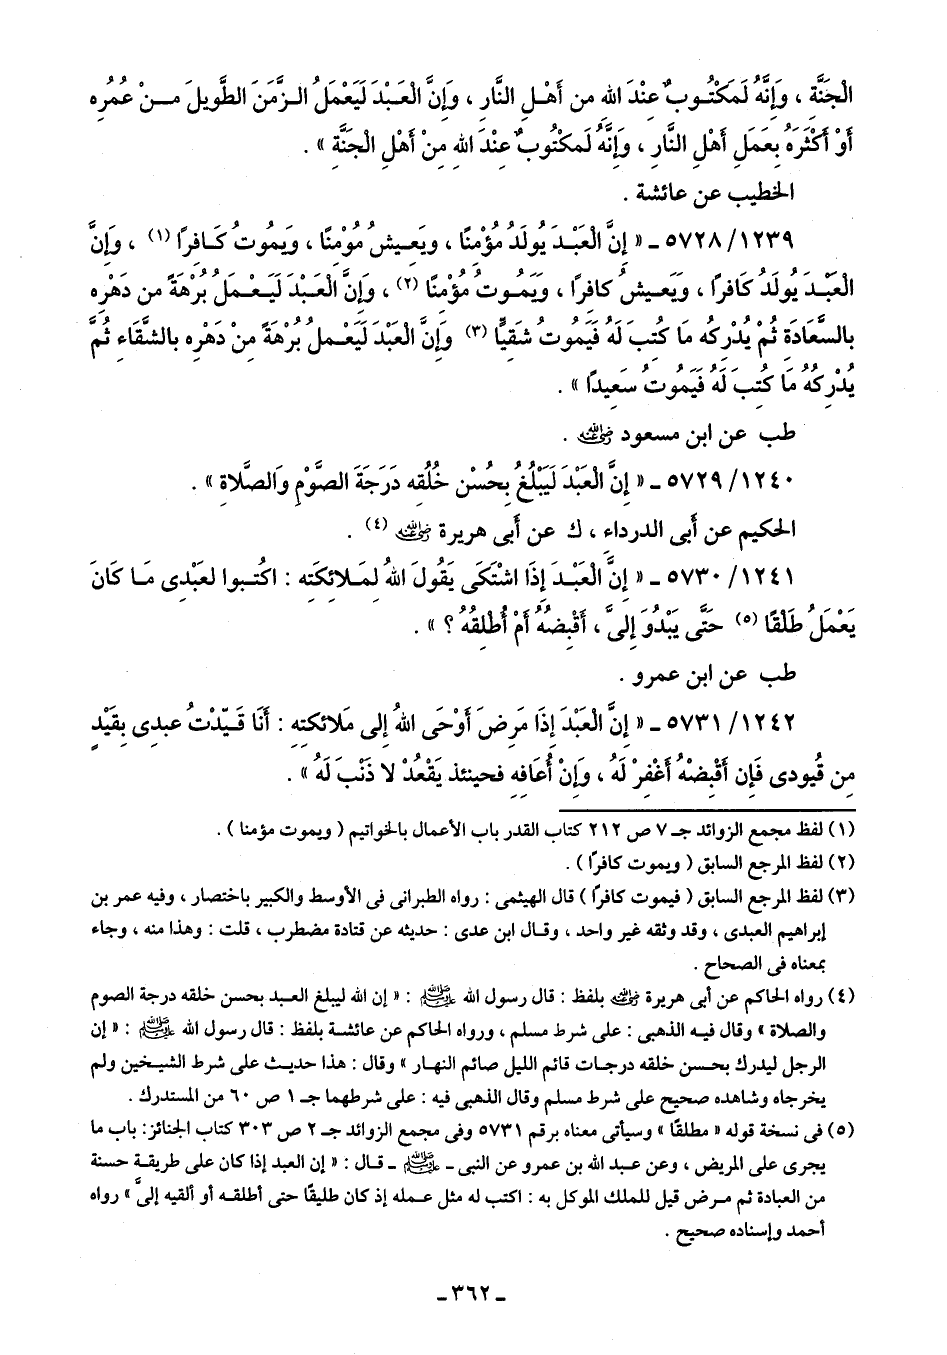 الْجَنَّةِ ، وَإِنَّهُ لَمَكْتُوبٌ عِنْدَ اللهِ مِن أَهْلِ النَّارِ ، وَإِنَّ الْعَبْدَ لَيَعْمَلُ الزَّمَنَ الطَّوِيلَ مِنْ عُمُرِهِ
أَوْ أَكْثَرَهُ بِعَمَلِ أَهْلِ النَّارِ ، وَإِنَّهُ لَمكْتُوبٌ عِنْدَ اللهِ مِنْ أَهْلِ الْجَنَّةِ » .
الخطيب عن عائشة .
٥٧٢٨/١٢٣٩ ـ « إِنَّ الْعَبْدَ يُولَدُ مُؤْمِنًا ، ويَعِيشُ مُؤْمِنًا ، وَيمُوتُ كَافِرًا (١) ، وَإِنَّ
الْعَبْدَ يُولَدُ كَافِرًا ، وَيَعِيشُ كَافِرًا ، وَيَمُوتُ مُؤْمِنًا (٢) ، وَإِنَّ الْعَبْدَ لَيَعْمَلُ بُرْهَةً مِن دَهْرِهِ
بِالسَّعَادَةِ ثُمَّ يُدْرِكُهُ مَا كُتِبَ لَهُ فَيَمُوتُ شَقِيًّا (٣) وَإِنَّ الْعَبْدَ لَيَعْمِلُ بُرْهَةً مِنْ دَهْرِهِ بالشَّقَاءِ ثُمَّ
يُدْرِكُهُ مَا كُتِبَ لَهُ فَيَمُوتُ سَعِيدًا » .
طب عن ابن مسعود رضي الله عنه .
٥٧٢٩/١٢٤٠ ـ « إِنَّ الْعَبْدَ لَيَبْلُغُ بِحُسْنِ خُلُقِهِ دَرَجَةَ الصَّوْمِ وَالصَّلاةِ » .
الحكيم عن أَبى الدرداء ، ك عن أَبى هريرة رضي الله عنه (٤) .
٥٧٣٠/١٢٤١ ـ « إِنَّ الْعَبْدَ إِذَا اشْتَكَى يَقُولَ اللهُ لِمَلائِكَتِهِ : اكتُبوا لِعَبْدِى مَا كَانَ
يَعْمَلُ طَلْقًا (٥) حَتَّى يَبْدُوَ إِلىَّ ، أَقْبِضُهُ أَمْ أُطْلِقُهُ ؟ » .
طب عن ابن عمرو .
٥٧٣١/١٢٤٢ ـ « إِنَّ الْعَبْدَ إِذَا مَرِضَ أَوْحَى اللهُ إِلى مَلائِكَتِهِ : أَنَا قَيّدْتُ عبدِى بِقَيْدٍ
مِن قُيودِى فَإِن أَقْبِضْهُ أَغْفِرْ لَهُ ، وَإِنْ أُعَافِهِ فَحِينَئِذٍ يَقْعُدُ لا ذَنْبَ لَهُ » .
(١) لفظ مجمع الزوائد جـ ٧ ص ٢١٢ كتاب القدر باب الأعمال بالخواتيم ( ويموت مؤمنا ) .
(٢) لفظ المرجع السابق ( ويموت كافرًا ) .
(٣) لفظ المرجع السابق ( فيموت كافرًا ) قال الهيثمى : رواه الطبرانى فى الأوسط والكبير باختصار ، وفيه عمر بن
إبراهيم العبدى ، وقد وثقه غير واحد ، وقال ابن عدى : حديثه عن قتادة مضطرب ، قلت : وهذا منه ، وجاء
بمعناه فى الصحاح .
(٤) رواه الحاكم عن أبى هريرة رضي الله عنه بلفظ : قال رسول الله ﷺ : « إن الله ليبلغ العبد بحسن خلقه درجة الصوم
والصلاة » وقال فيه الذهبى : على شرط مسلم ، ورواه الحاكم عن عائشة بلفظ : قال رسول الله ﷺ : « إن
الرجل ليدرك بحسن خلقه درجات قائم الليل صائم النهار » وقال : هذا حديث على شرط الشيخين ولم
يخرجاه وشاهده صحيح على شرط مسلم وقال الذهبى فيه : على شرطهما جـ ١ ص ٦٠ من المستدرك .
(٥) فى نسخة قوله « مطلقًا » وسيأتى معناه برقم ٥٧٣١ وفى مجمع الزوائد جـ ٢ ص ٣٠٣ كتاب الجنائز: باب ما
يجرى على المريض ، وعن عبد الله بن عمرو عن النبى ـ ﷺ ـ قال : « إن العبد إذا كان على طريقة حسنة
من العبادة ثم مرض قيل للملك الموكل به : اكتب له مثل عمله إذ كان طليقًا حتى أطلقه أو ألقيه إلىَّ » رواه
أحمد وإسناده صحيح .
ـ ٣٦٢ ـ